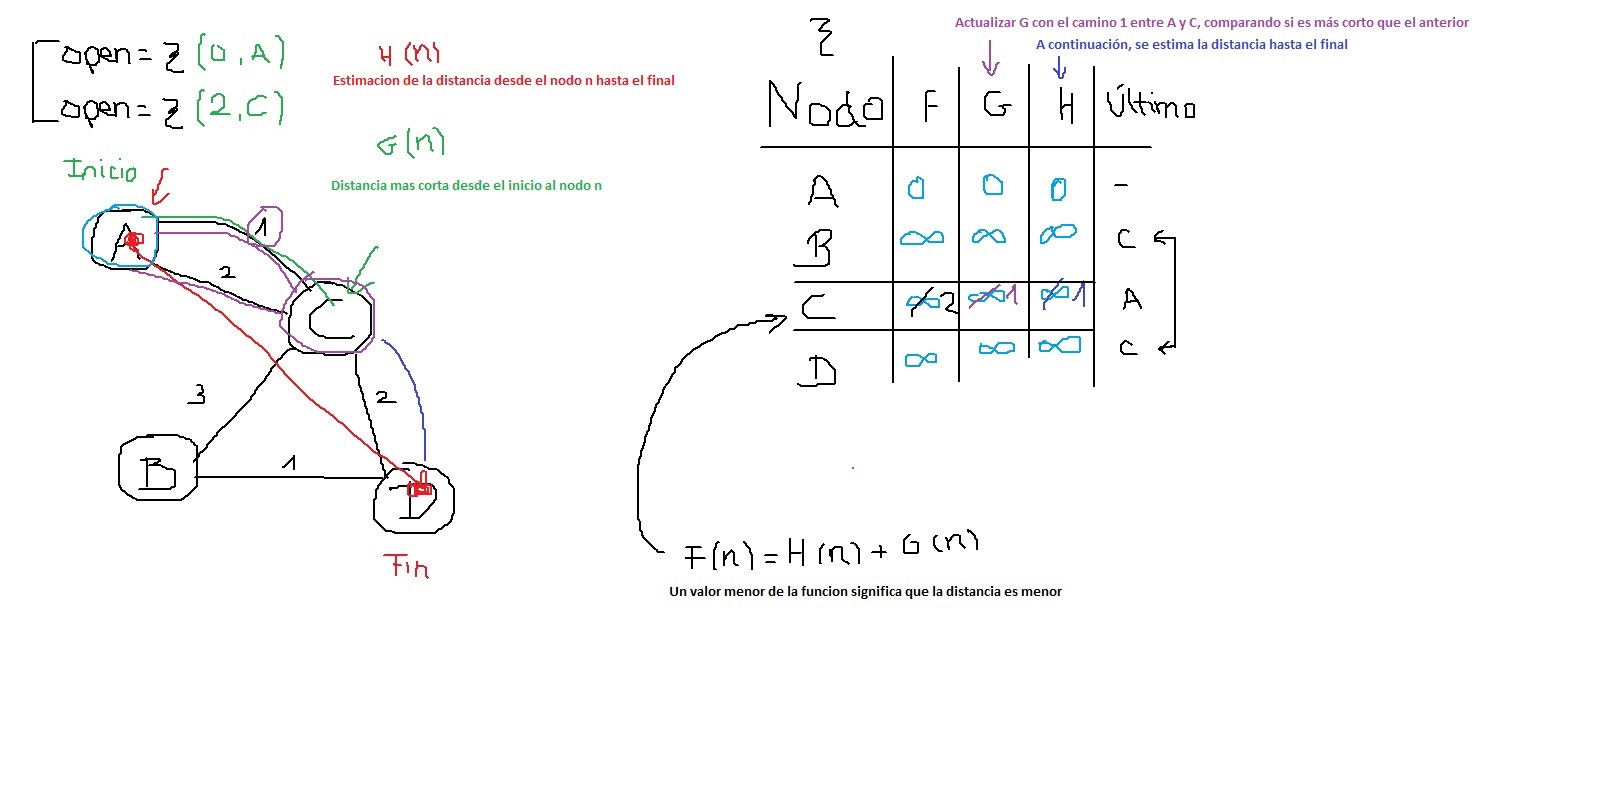 open = { (0, A)
open = { (2, C)
H (n)
Estimacion de la distancia desde el nodo n hasta el final
G (n)
Distancia mas corta desde el inicio al nodo n
Inicio
A
1
2
C
3
2
B
1
D
Fin
{
Actualizar G con el camino 1 entre A y C, comparando si es más corto que el anterior
A continuación, se estima la distancia hasta el final
Nodo F G H Último
A 0 0 0 -
B ∞ ∞ ∞ C
C ∞ 2 ∞ 1 ∞ 1 A
D ∞ ∞ ∞ C
F(n) = H (n) + G (n)
Un valor menor de la funcion significa que la distancia es menor